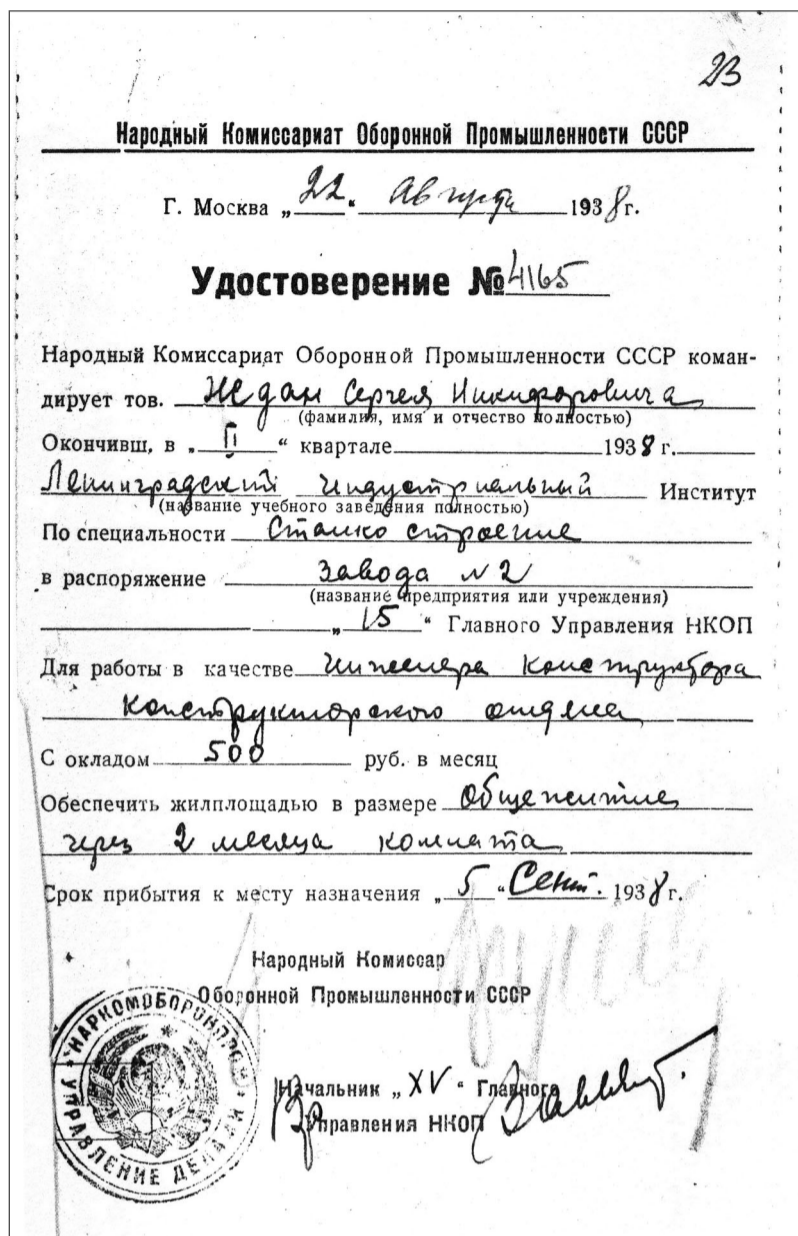 23
Народный Комиссариат Оборонной Промышленности СССР
Г. Москва „22“ Августа 1938 г.
Удостоверение № 4165
Народный Комиссариат Оборонной Промышленности СССР коман-
дирует тов. Жедан Сергея Никифоровича
(фамилия, имя и отчество полностью)
Окончивш. в „II“ квартале 1938 г.
Ленинградский индустриальный Институт
(название учебного заведения полностью)
По специальности Станкостроение
в распоряжение Завода № 2
(название предприятия или учреждения)
„15“ Главного Управления НКОП
Для работы в качестве инженера конструктора
конструкторского отдела
С окладом 500 руб. в месяц
Обеспечить жилплощадью в размере общежитие
через 2 месяца комната
Срок прибытия к месту назначения „5“ Сент. 1938 г.
Народный Комиссар
Оборонной Промышленности СССР
НАРКОМОБОРОНПРОМ
УПРАВЛЕНИЕ ДЕЛАМИ
Начальник „XV“ Главного
Управления НКОП